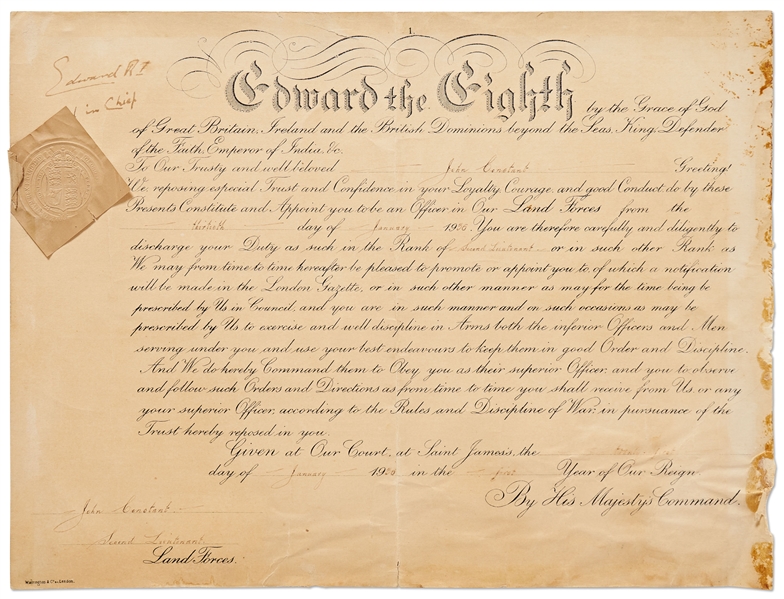 1.
Edward R I
in Chief
Edward the Eighth by the Grace of God
of Great Britain, Ireland and the British Dominions beyond the Seas, King, Defender
of the Faith, Emperor of India, &c.
To Our Trusty and well beloved John Constant Greeting!
We, reposing especial Trust and Confidence in your Loyalty, Courage, and good Conduct, do by these
Presents Constitute and Appoint you to be an Officer in Our Land Forces from the
thirtieth day of January 1936. You are therefore carefully and diligently to
discharge your Duty as such in the Rank of Second Lieutenant or in such other Rank as
We may from time to time hereafter be pleased to promote or appoint you to, of which a notification
will be made in the London Gazette, or in such other manner as may for the time being be
prescribed by Us in Council, and you are in such manner and on such occasions as may be
prescribed by Us to exercise and well discipline in Arms both the inferior Officers and Men
serving under you and use your best endeavours to keep them in good Order and Discipline.
And We do hereby Command them to Obey you as their superior Officer, and you to observe
and follow such Orders and Directions as from time to time you shall receive from Us, or any
your superior Officer, according to the Rules and Discipline of War, in pursuance of the
Trust hereby reposed in you.
Given at Our Court, at Saint James's, the
day of January 1936 in the first Year of Our Reign
By His Majesty's Command.
John Constant
Second Lieutenant
Land Forces.